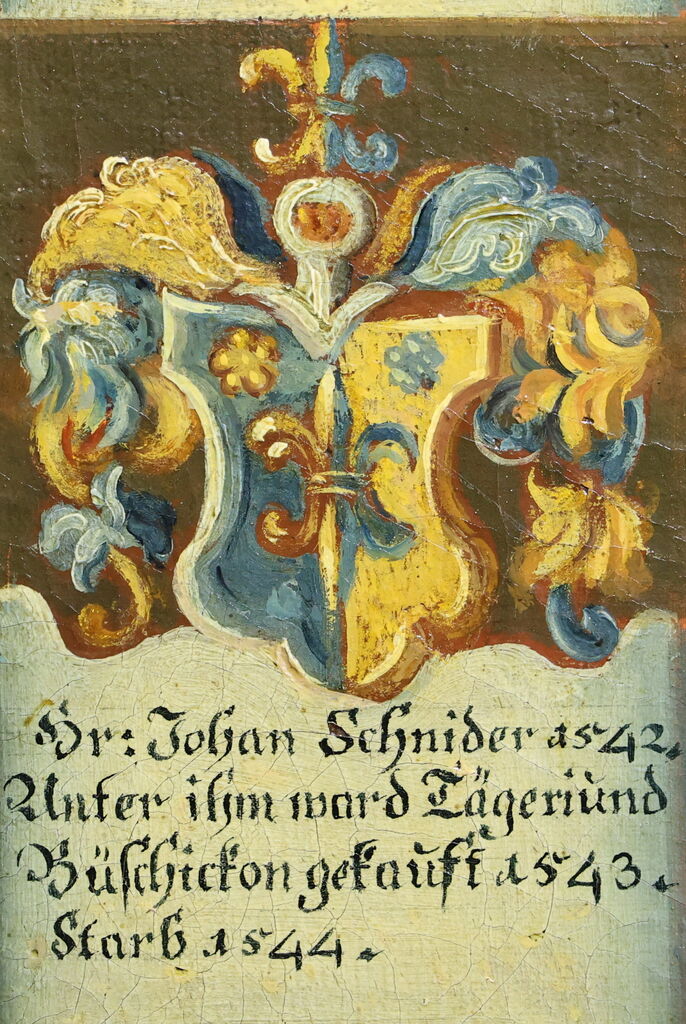 Hr: Johan Schnider 1542.
Unter ihm ward Tägeri und
Büschickon gekaufft 1543.
Starb 1544.